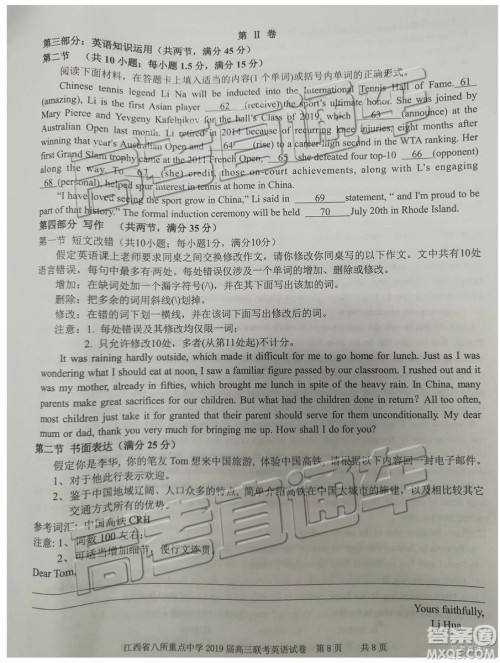 第 II 卷
第三部分：英语知识运用（共两节，满分 45 分）
第二节 （共 10 小题；每小题 1.5 分，满分 15 分）
阅读下面材料，在答题卡上填入适当的内容(1 个单词)或括号内单词的正确形式。
Chinese tennis legend Li Na will be inducted into the International Tennis Hall of Fame. 61
(amazing), Li is the first Asian player 62 (receive) the sport's ultimate honor. She was joined by
Mary Pierce and Yevgeny Kafelnikov for the hall's Class of 2019, which 63 (announce) at the
Australian Open last month. Li retired in 2014 because of recurring knee injuries, eight months after
winning that year's Australian Open and 64 (rise) to a career-high second in the WTA ranking. Her
first Grand Slam trophy came at the 2011 French Open, 65 she defeated four top-10 66 (opponent)
along the way. To 67 (she) credit, those on-court achievements, along with L's engaging
68 (personal), helped spur interest in tennis at home in China.
"I have loved seeing the sport grow in China," Li said in 69 statement, "and I'm proud to be
part of that history." The formal induction ceremony will be held 70 July 20th in Rhode Island.
第四部分 写作 （共两节，满分 35 分）
第一节 短文改错（共10小题；每小题1分，满分10分）
假定英语课上老师要求同桌之间交换修改作文，请你修改你同桌写的以下作文。文中共有10处
语言错误，每句中最多有两处。每处错误仅涉及一个单词的增加、删除或修改。
增加：在缺词处加一个漏字符号(∧)，并在其下面写出该加的词。
删除：把多余的词用斜线(\)划掉。
修改：在错的词下划一横线，并在该词下面写出修改后的词。
注意：1. 每处错误及其修改均仅限一词；
2. 只允许修改10处，多者(从第11处起)不计分。
It was raining hardly outside, which made it difficult for me to go home for lunch. Just as I was
wondering what I should eat at noon, I saw a familiar figure passed by our classroom. I rushed out and it
was my mother, already to bring me lunch in spite of the heavy rain. In China, many
parents make great sacrifices for our children. But what had the children done in return? All too often,
most children just take it for granted that their parent should serve for them unconditionally. My dear
mum or dad, thank you very much for bringing me up. How shall I do for you?
第二节 书面表达（满分 25 分）
假定你是李华，你的笔友 Tom 想来中国旅游，体验中国高铁，请根据以下内容回一封电子邮件。
1、对于他此行表示欢迎。
2、鉴于中国地域辽阔、人口众多的特点，简单介绍高铁在中国大城市的施建，以及相对于其它
交通方式所有的优势。
参考词汇：中国高铁 CRH
注意：1、词数 100 左右；
2、可适当增加细节，使行文连贯。
Dear Tom,
Yours faithfully,
Li Hua
江西省八所重点中学 2019 届高三联考英语试卷 第 8 页 共 8 页
高考直通车
高考直通车